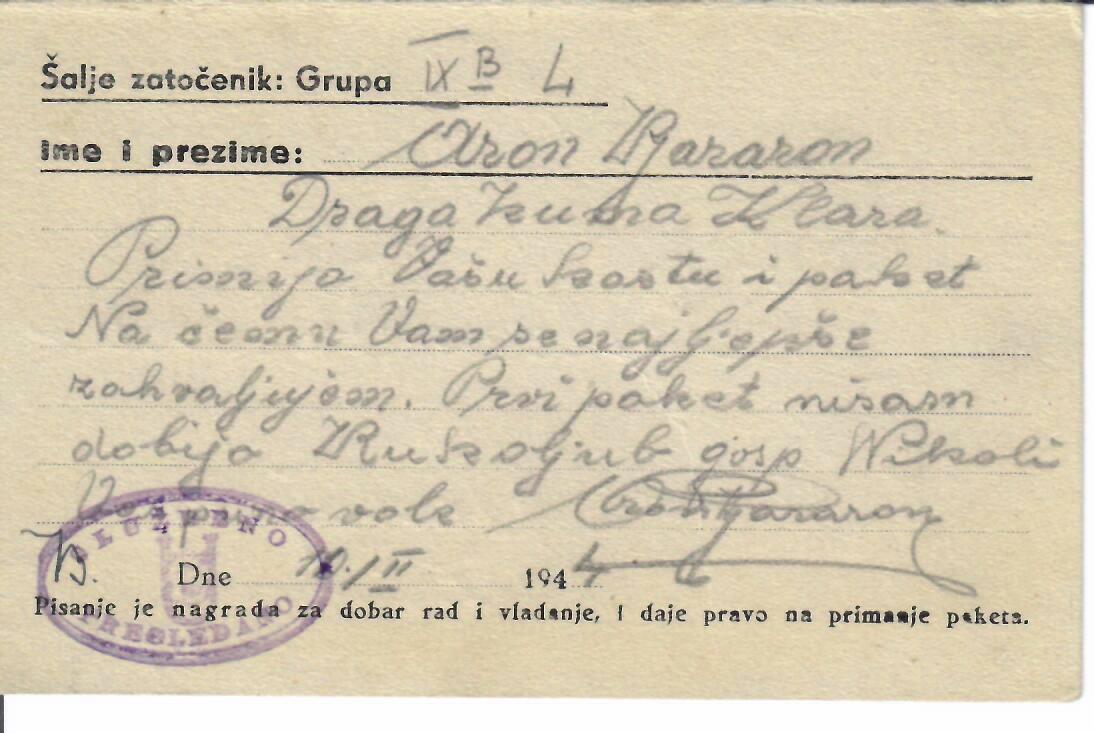 Šalje zatočenik: Grupa IX B 4
Ime i prezime: Aron
Draga kuma Klara.
Primijo Vašu kartu i paket
Na čemu Vam se najljepše
zahvaljujem. Prvi paket nisam
dobijo Rukoljub gosp Nikoli
Vas puno vole Aron
B. Dne 10./II 1944
SLUŽBENO
PREGLEDANO
Pisanje je nagrada za dobar rad i vladanje, i daje pravo na primanje paketa.